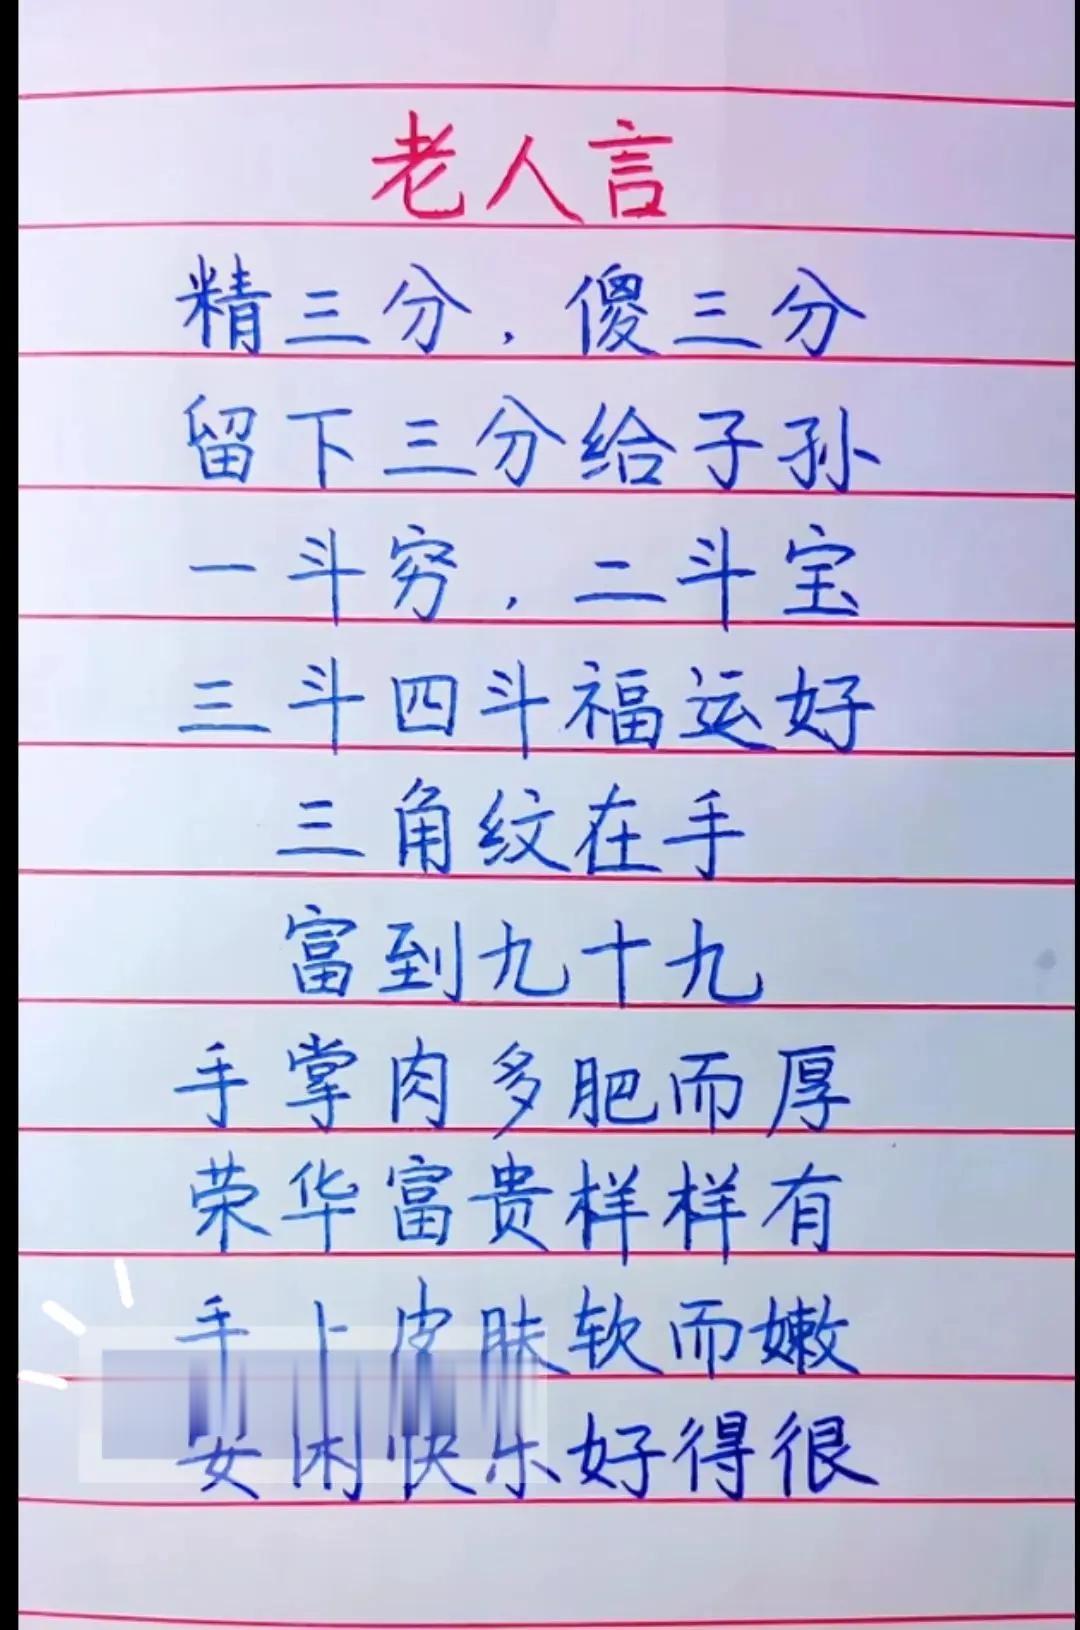 老人言
精三分，傻三分
留下三分给子孙
一斗穷，二斗宝
三斗四斗福运好
三角纹在手
富到九十九
手掌肉多肥而厚
荣华富贵样样有
手上皮肤软而嫩
安闲快乐好得很